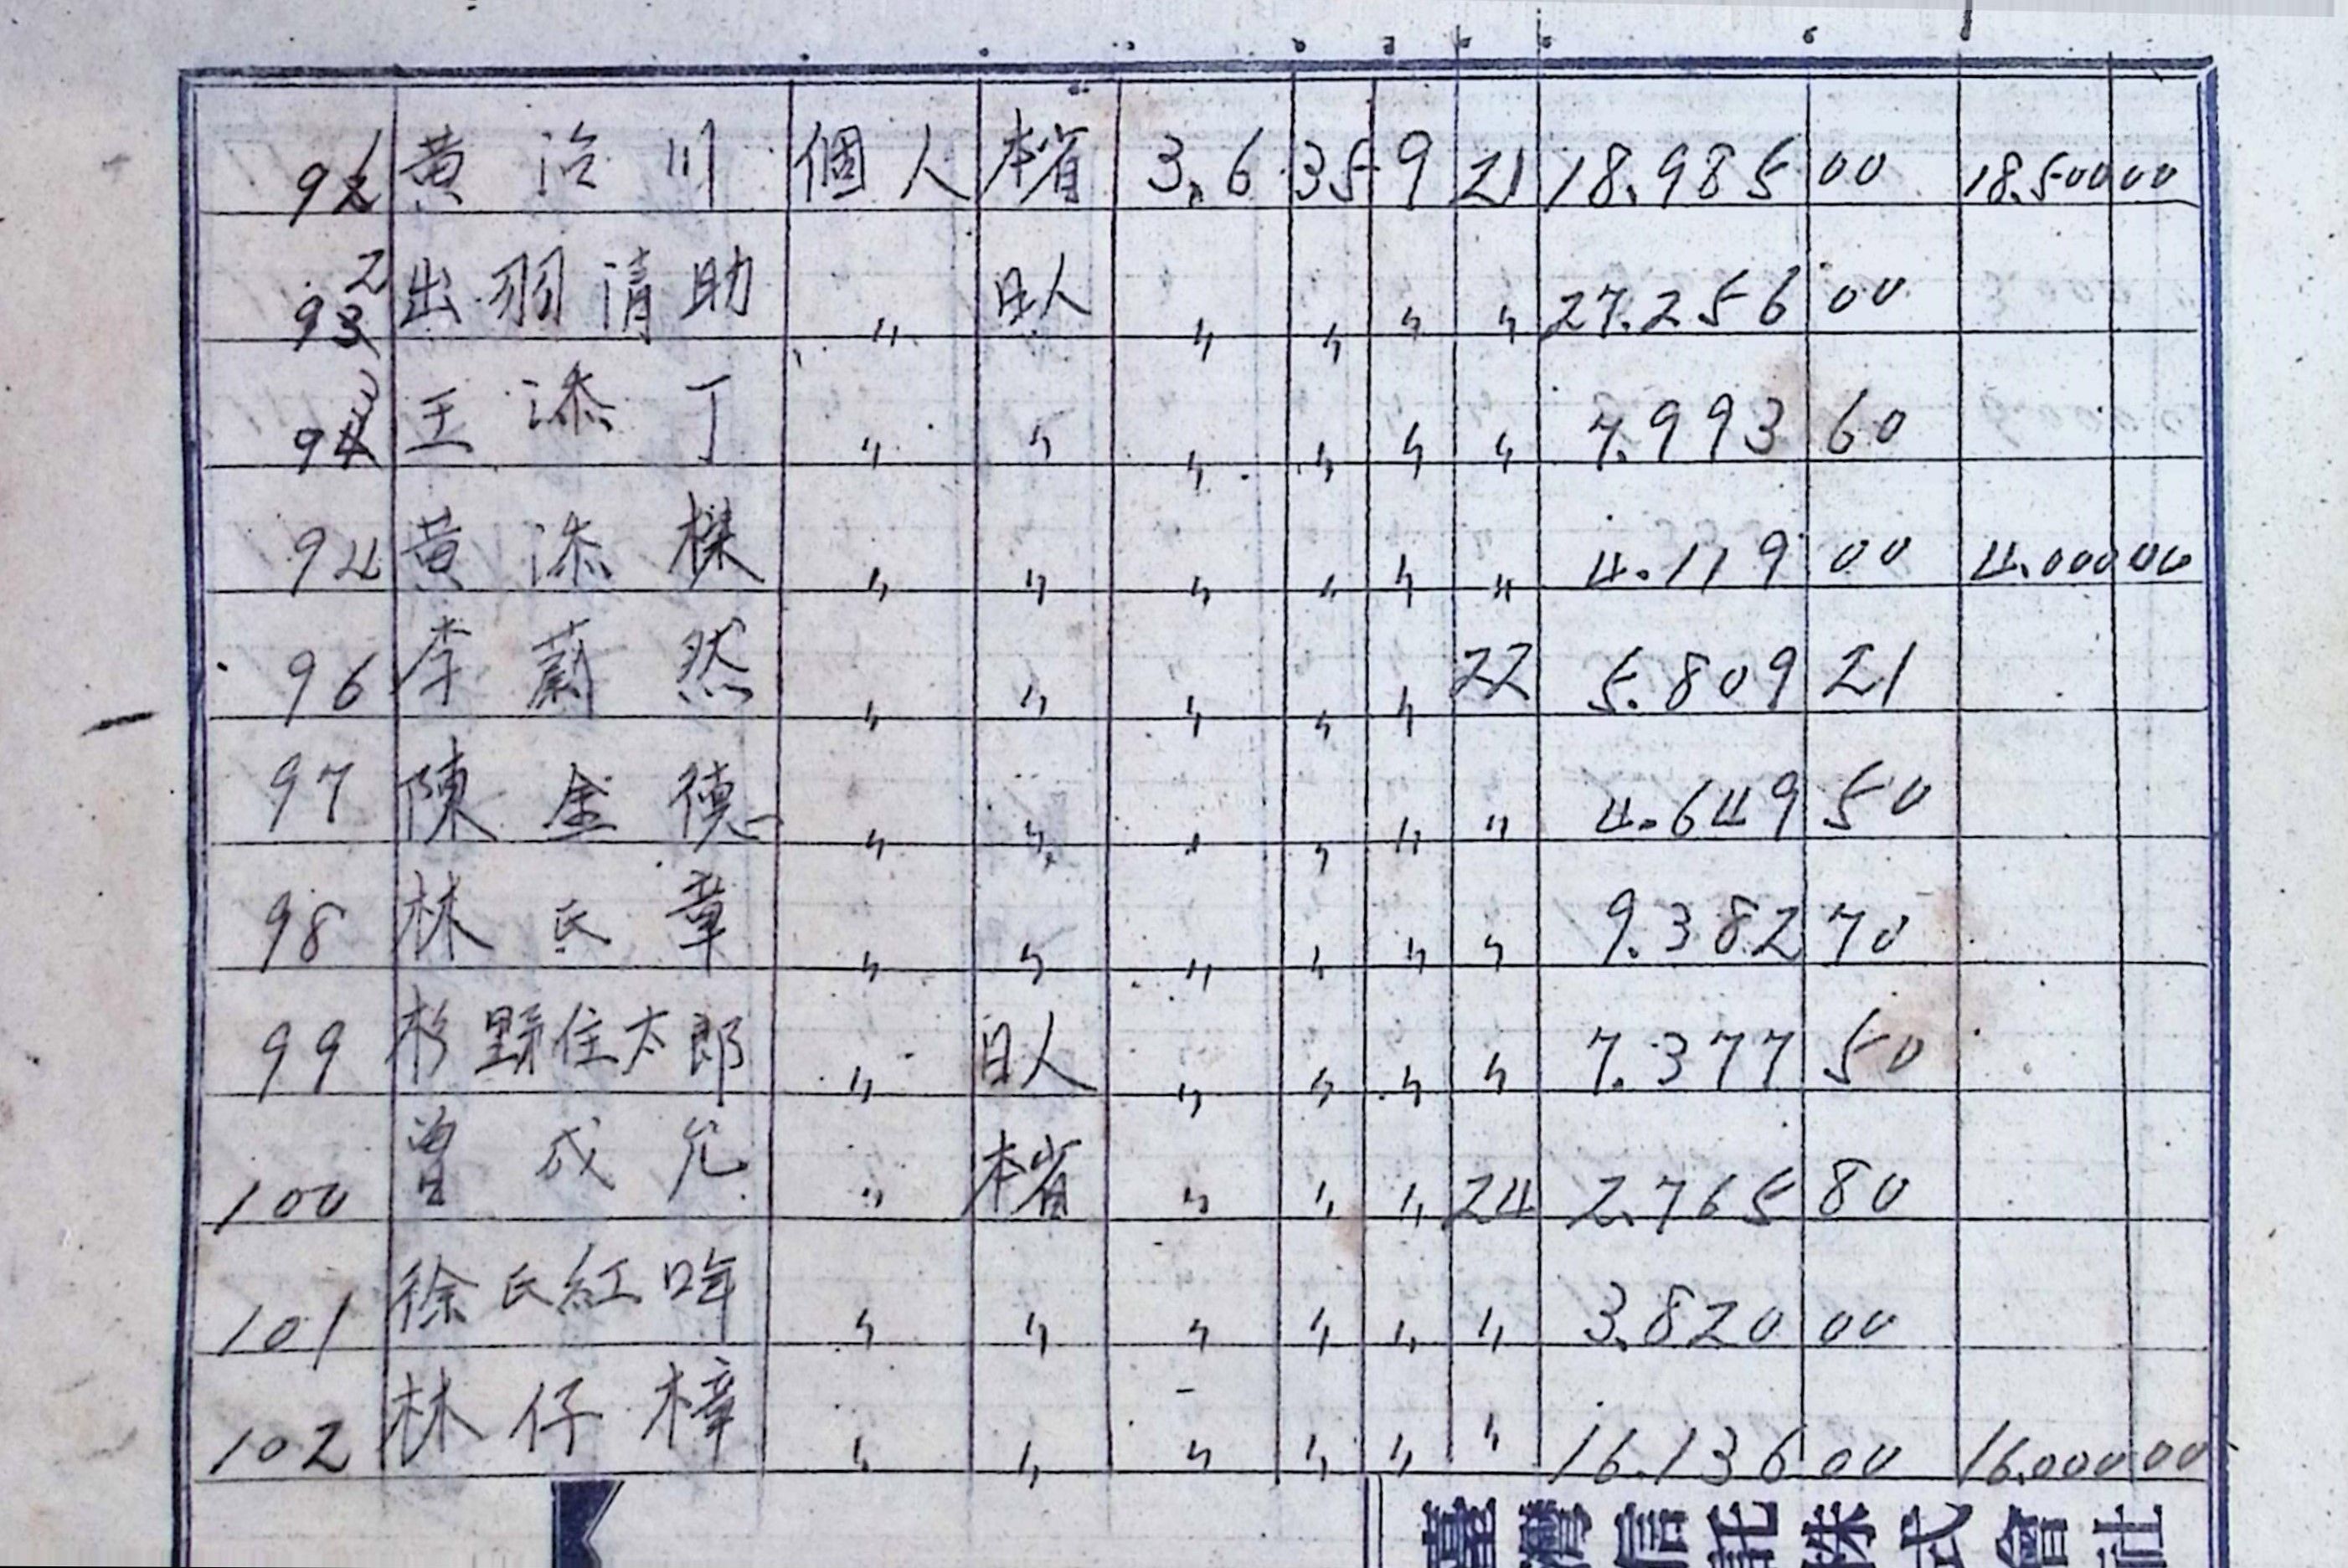 91 黄治川 個人 本省 3,6 35 9 21 18.985 00 18.500 00
92 出羽清助 〃 日人 〃 〃 〃 〃 27.256 00
93 王添丁 〃 〃 〃 〃 〃 〃 7.993 60
94 黄添樑 〃 〃 〃 〃 〃 〃 4.119 00 4.000 00
96 李蔚然 〃 〃 〃 〃 〃 22 5.809 21
97 陳金德 〃 〃 〃 〃 〃 〃 4.649 50
98 林氏章 〃 〃 〃 〃 〃 〃 9.382 70
99 杉野住太郎 〃 日人 〃 〃 〃 〃 7.377 50
100 曾成允 〃 本省 〃 〃 〃 24 2.765 80
101 徐氏紅 〃 〃 〃 〃 〃 〃 3.820 00
102 林仔樟 〃 〃 〃 〃 〃 〃 16.136 00 16.000 00
臺灣信託株式會社